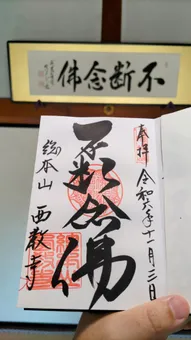 不断念佛
奉拝
令和六年十一月三日
不断念佛
総本山
西教寺